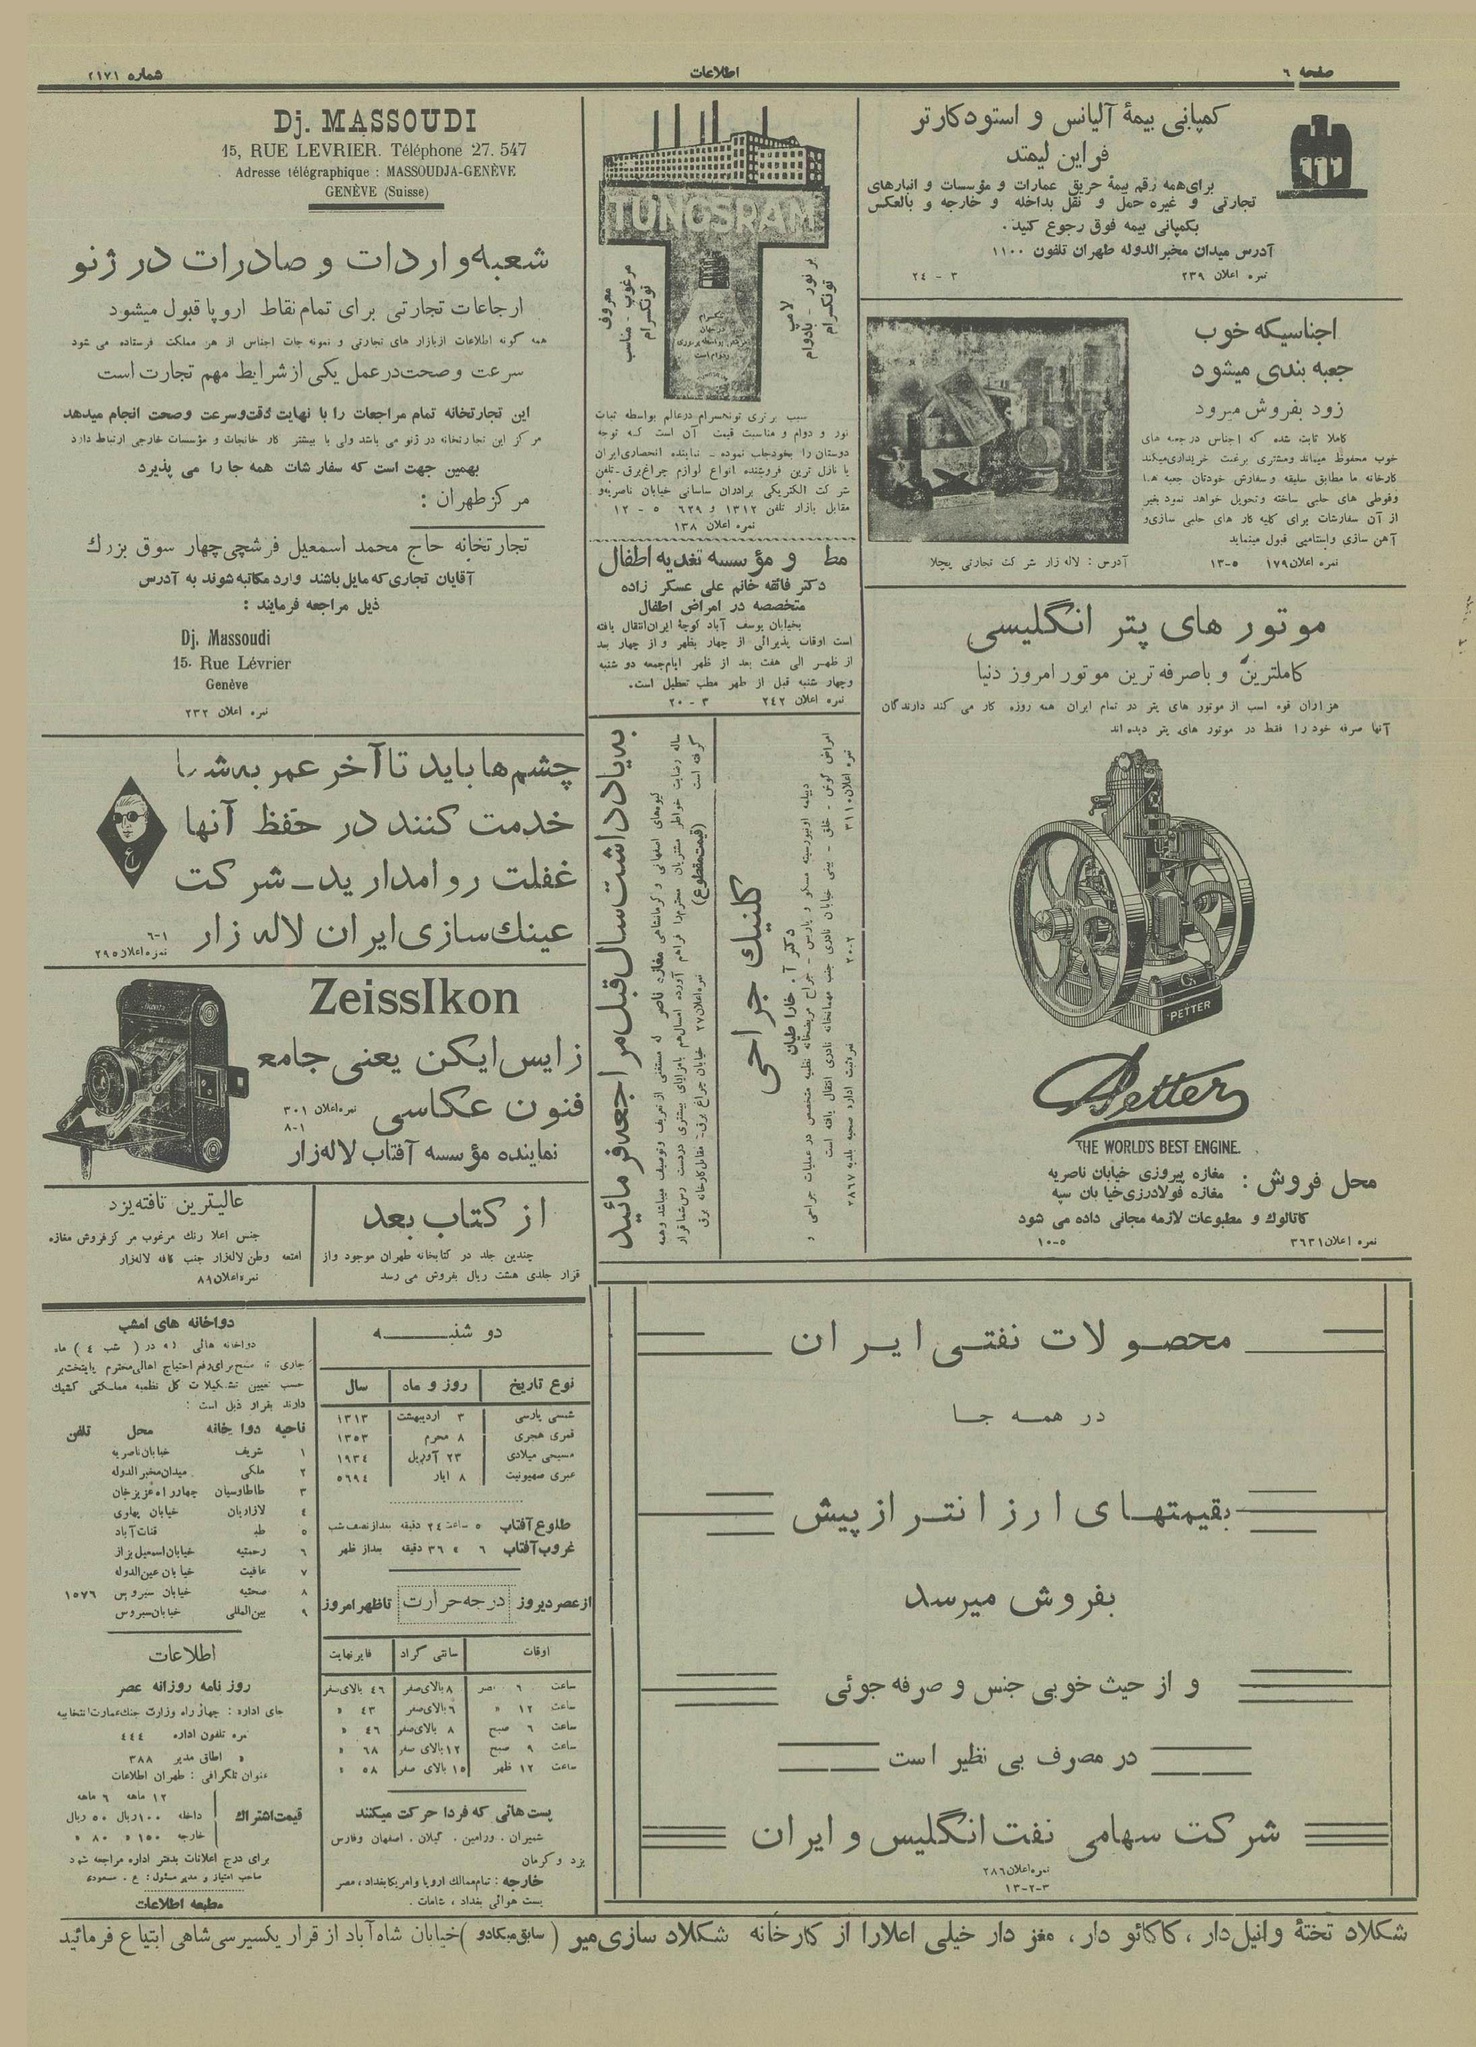 صفحه ٦
اطلاعات
شماره ٢١٧١
کمپانی بیمهٔ آلیانس و استودکارتر
فراین لیمتد
برای همه رقم بیمهٔ حریق عمارات و مؤسسات و انبارهای
تجارتی و غیره حمل و نقل بداخله و خارجه و بالعکس
بکمپانی بیمه فوق رجوع کنید.
آدرس میدان مخبرالدوله طهران تلفون ١١٠٠
نمره اعلان ٢٣٩
٣ - ٢٤
اجناسیکه خوب
جعبه بندی میشود
زود بفروش میرود
کاملا ثابت شده که اجناس در جعبه های
خوب محفوظ میماند ومشتری برغبت خریداری میکند
کارخانه ما مطابق سلیقه و سفارش خودتان جعبه ها
وقوطی های حلبی ساخته وتحویل خواهد نمود بغیر
از آن سفارشات برای کلیه کار های حلبی سازی و
آهن سازی واستامپی قبول مینماید
نمره اعلان ١٧٩ ٥-١٣
آدرس : لاله زار شرکت تجارتی پیچلا
موتور های پتر انگلیسی
کاملترین و باصرفه ترین موتور امروز دنیا
هزاران قوه اسب از موتور های پتر در تمام ایران همه روزه کار می کند دارندگان
آنها صرفه خود را فقط در موتور های پتر دیده اند
PETTER
Petter
THE WORLD'S BEST ENGINE.
محل فروش :
مغازه پیروزی خیابان ناصریه
مغازه فولادرزی خیابان سپه
کاتالوک و مطبوعات لازمه مجانی داده می شود
نمره اعلان ٣٦٣١
٥-١٠
TUNGSRAM
پر نور - بادوام
لامپ
تونگسرام
معروف
مرغوب - مناسب
تونگسرام
سبب برتری تونگسرام درعالم بواسطه ثبات
نور و دوام و مناسبت قیمت آن است که توجه
دوستان را بخود جلب نموده - نماینده انحصاری ایران
با نازل ترین فروشنده انواع لوازم چراغ برق - تلفن
شرکت الکتریکی برادران ساسانی خیابان ناصریه و
مقابل بازار تلفن ١٣١٢ و ٦٢٩ ٥ - ١٢
نمره اعلان ١٣٨
مط و مؤسسه تغدیه اطفال
دکتر فائقه خانم علی عسکر زاده
متخصصه در امراض اطفال
بخیابان یوسف آباد کوچهٔ ایران انتقال یافته
است اوقات پذیرائی از چهار بظهر و از چهار بعد
از ظهر الی هفت بعد از ظهر ایام جمعه دو شنبه
وچهار شنبه قبل از ظهر مطب تعطیل است.
نمره اعلان ٢٤٢ ٣ - ٢٠
به یادداشت سال قبل مراجعه فرمائید
گیوه‌های اصفهانی و کرمانشاهی مغازه ناصر که مستغنی از تعریف و توصیف میباشد و همه
ساله رضایت خواطر مشتریان محترم را فراهم آورده امسال هم بامزایای بیشتری در دست رس شما قرار
گرفته است
(قیمت مقطوع)
نمره اعلان ٢٧ خیابان چراغ برق - مقابل کارخانه برق
کلنیك جراحی
دکتر آ . خاراطیان
دیپلمه اونیورسیته مسکو و پاریس - جراح مریضخانه نظمیه متخصص در عملیات جراحی و
امراض گوش - حلق - بینی خیابان نادری جنب مهمانخانه نادری انتقال یافته است
نمره اعلان ٣١١٠ ٢-٢٠ نمره ثبت اداره صحیه بلدیه ٢٨٦٧
Dj. MASSOUDI
15, RUE LEVRIER. Téléphone 27. 547
Adresse télégraphique : MASSOUDJA-GENÈVE
GENÈVE (Suisse)
شعبه واردات و صادرات در ژنو
ارجاعات تجارتی برای تمام نقاط اروپا قبول میشود
همه گونه اطلاعات ازبازار های تجارتی و نمونه جات اجناس از هر مملکت فرستاده می شود
سرعت وصحت در عمل یکی از شرایط مهم تجارت است
این تجارتخانه تمام مراجعات را با نهایت دقت وسرعت وصحت انجام میدهد
مرکز این تجارتخانه در ژنو می باشد ولی با بیشتر کارخانجات و مؤسسات خارجی ارتباط دارد
بهمین جهت است که سفارشات همه جا را می پذیرد
مرکز طهران :
تجارتخانه حاج محمد اسمعیل فرشچی چهار سوق بزرك
آقایان تجاری که مایل باشند وارد مکاتبه شوند به آدرس
ذیل مراجعه فرمایند :
Dj. Massoudi
15. Rue Lévrier
Genève
نمره اعلان ٢٣٢
چشم ها باید تا آخر عمر به شما
خدمت کنند در حفظ آنها
غفلت روا مدارید - شرکت
عینك سازی ایران لاله زار
١-٦
نمره اعلان ٢٩٥
ZeissIkon
زایس ایکن یعنی جامع
فنون عکاسی
نمره اعلان ٣٠١
١-٨
نماینده مؤسسه آفتاب لاله زار
از کتاب بعد
چندین جلد در کتابخانه طهران موجود واز
قرار جلدی هشت ریال بفروش می رسد
عالیترین تافته یزد
جنس اعلا رنك مرغوب مرکز فروش مغازه
امتعه وطن لاله‌زار جنب کافه لاله‌زار
نمره اعلان ٨٩
محصولات نفتی ایران
در همه جا
بقیمتهای ارزانتر از پیش
بفروش میرسد
و از حیث خوبی جنس و صرفه جوئی
در مصرف بی نظیر است
شرکت سهامی نفت انگلیس و ایران
نمره اعلان ٢٨٦
٣-٢-١٣
دو شنبه
نوع تاریخ روز و ماه سال
شمسی پارسی ٣ اردیبهشت ١٣١٣
قمری هجری ٨ محرم ١٣٥٣
مسیحی میلادی ٢٣ آوریل ١٩٣٤
عبری صهیونیت ٨ ایار ٥٦٩٤
طلوع آفتاب ٥ ساعت ٢٤ دقیقه بعد از نصف شب
غروب آفتاب ٦ » ٣٦ دقیقه بعد از ظهر
از عصر دیروز درجه حرارت تا ظهر امروز
اوقات سانتی گراد فارنهایت
ساعت ٦ عصر ٨ بالای صفر ٤٦ بالای صفر
ساعت ١٢ » ٦ بالای صفر ٤٣ »
ساعت ٦ صبح ٨ بالای صفر ٤٦ »
ساعت ٩ صبح ١٢ بالای صفر ٦٨ »
ساعت ١٢ ظهر ١٥ بالای صفر ٥٨ »
پست هائی که فردا حرکت میکنند
شمیران . ورامین . گیلان . اصفهان وفارس
یزد و کرمان
خارجه : تمام ممالك اروپا وامریکا بغداد ، مصر
پست هوائی بغداد ، شامات .
دواخانه های امشب
دواخانه هائی که در ( شب ٤ ) ماه
جاری تا صبح برای رفع احتیاج اهالی محترم پایتخت بر
حسب تعیین تشکیلات کل نظمیه مملکتی کشیك
دارند بقرار ذیل است :
ناحیه دواخانه محل تلفن
١ شریف خیابان ناصریه
٢ ملکی میدان مخبرالدوله
٣ طاطاوسیان چهارراه عزیزخان
٤ لازاریان خیابان پهلوی
٥ طبـ قنات آباد
٦ رحمتیه خیابان اسمعیل بزاز
٧ عافیت خیابان عین الدوله
٨ صحتیه خیابان سیروس ١٥٧٦
٩ بین المللی خیابان سیروس
اطلاعات
روزنامه روزانه عصر
جای اداره : چهارراه وزارت جنك عمارت انتخابیه
نمره تلفون اداره ٤٤٤
» اطاق مدیر ٣٨٨
عنوان تلگرافی : طهران اطلاعات
١٢ ماهه ٦ ماهه
قیمت اشتراك
داخله ١٠٠ ریال ٥٠ ریال
خارجه ١٥٠ » ٨٠ »
برای درج اعلانات بدفتر اداره مراجعه شود
صاحب امتیاز و مدیر مسئول : ع . مسعودی
مطبعه اطلاعات
شکلاد تختهٔ وانیل دار ، کاکائو دار ، مغز دار خیلی اعلارا از کارخانه شکلاد سازی میر ( سابق میکادو ) خیابان شاه آباد از قرار یکسیر سی شاهی ابتیاع فرمائید